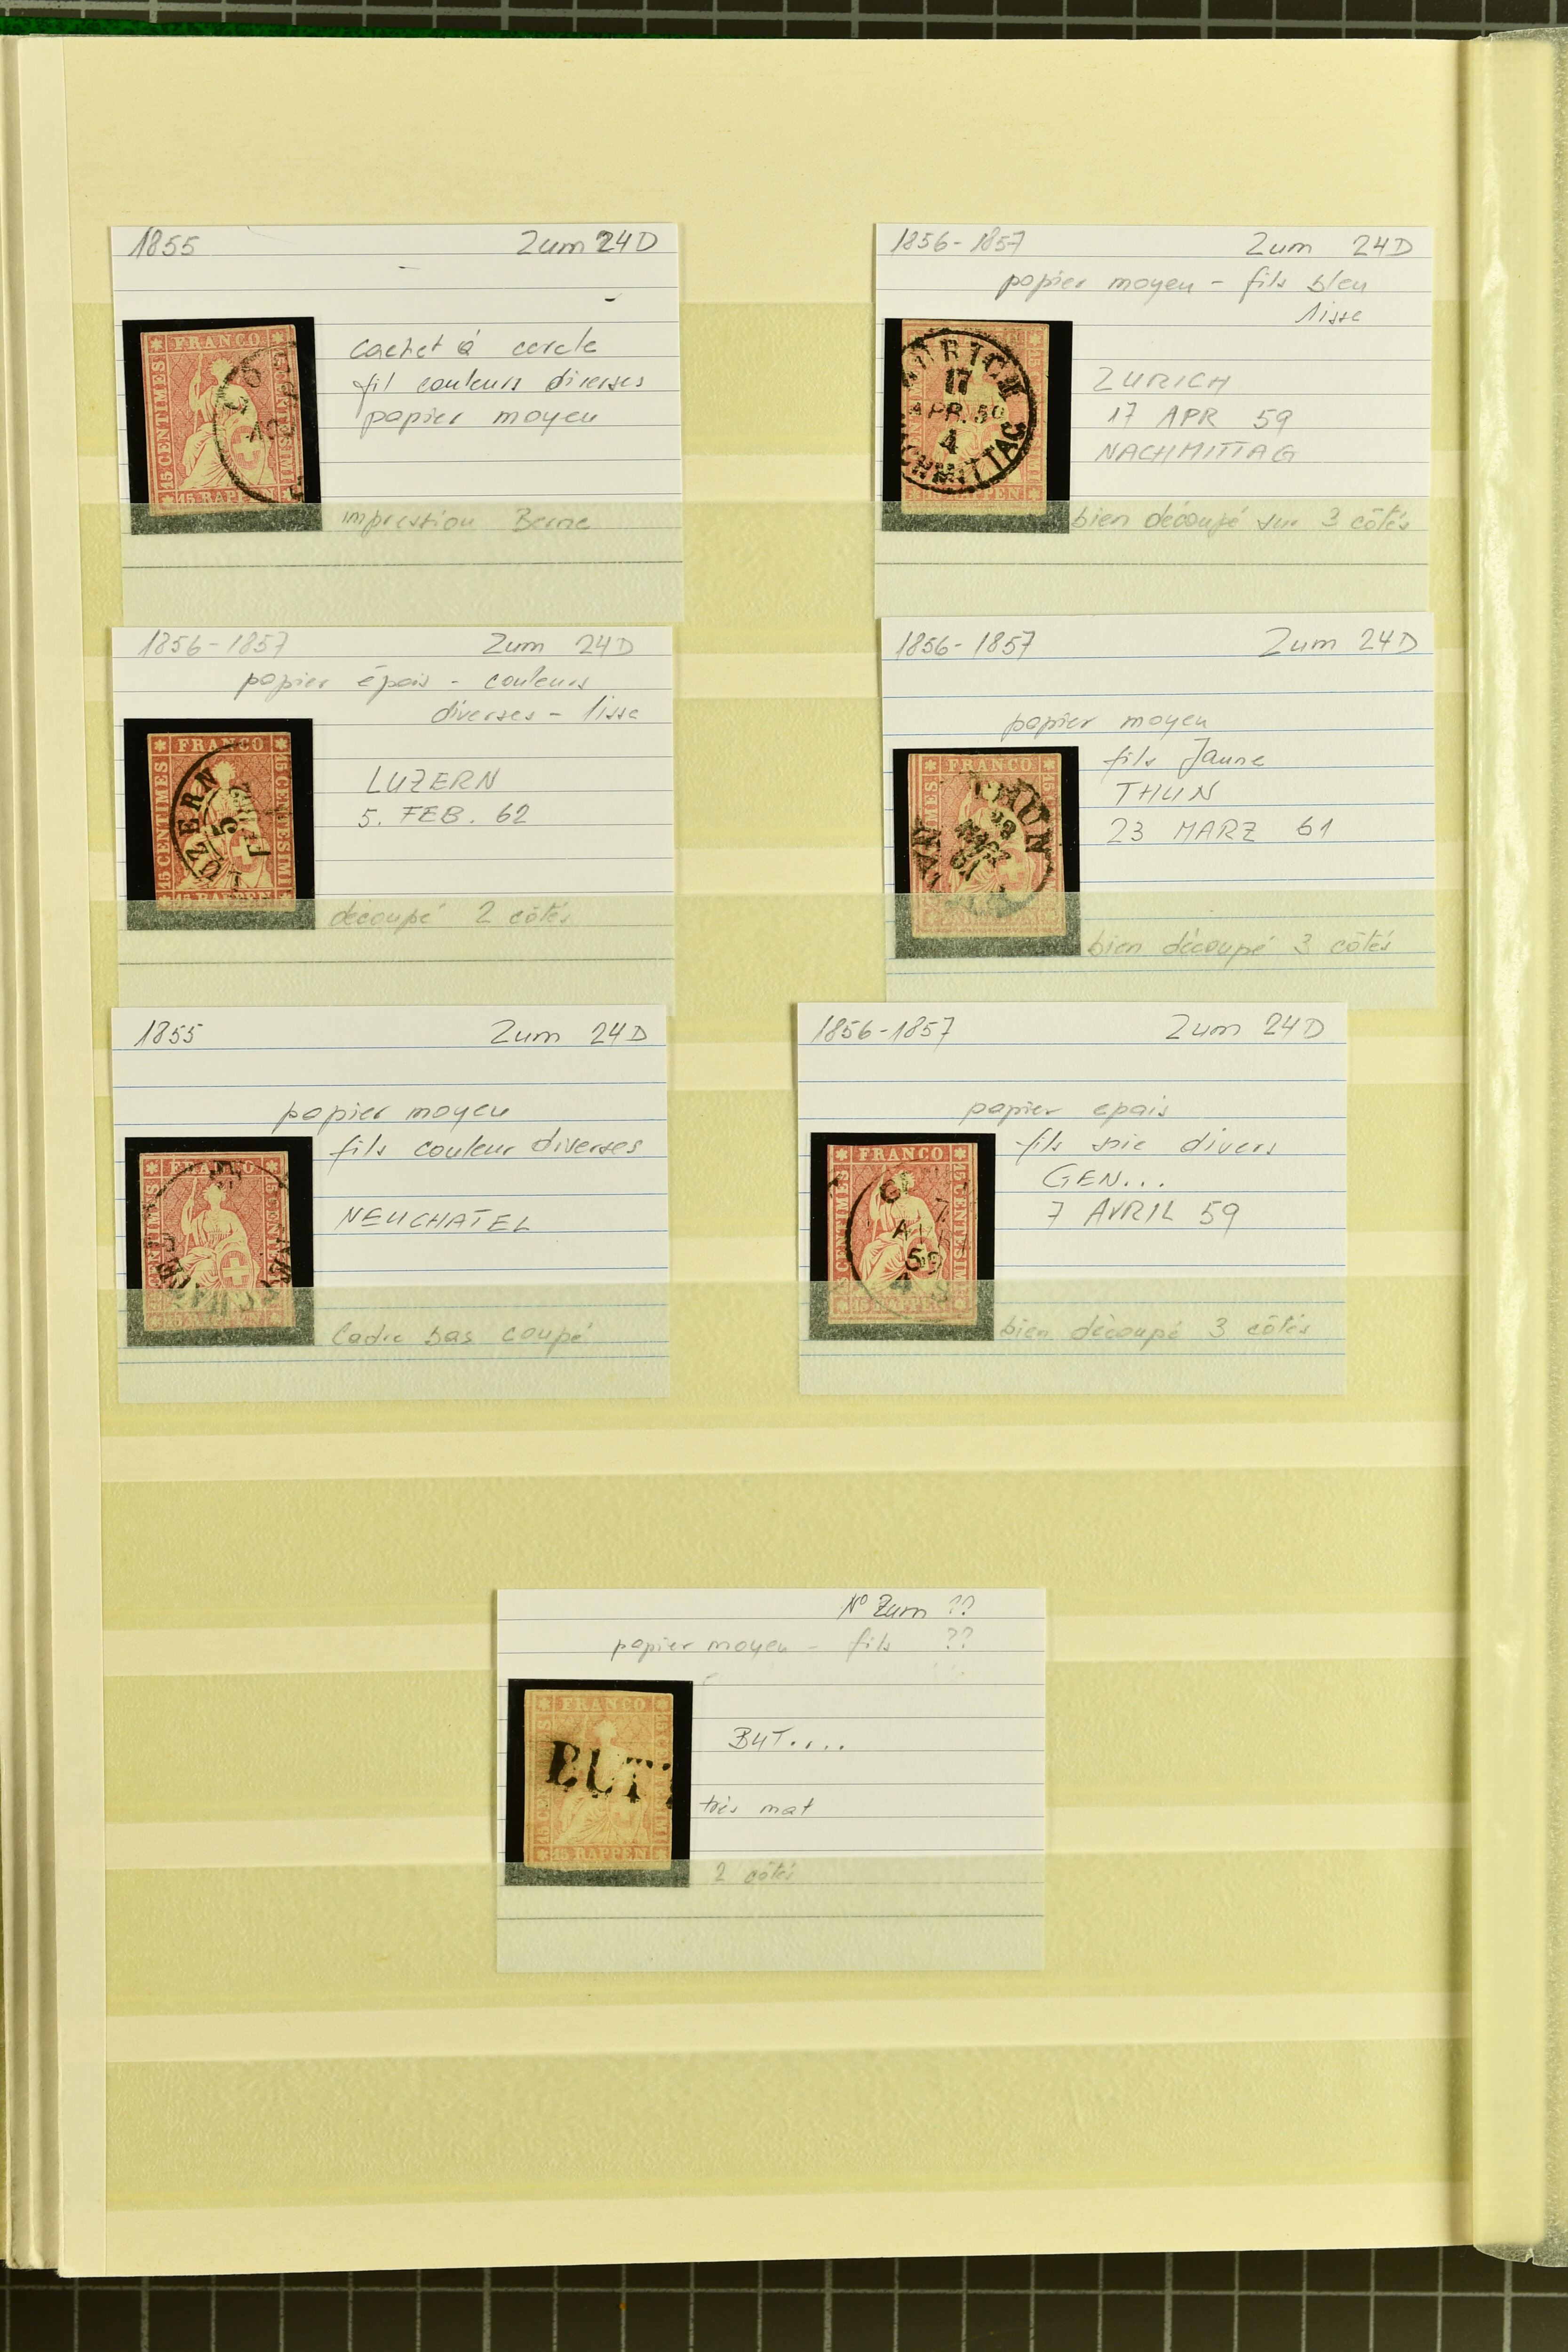 1855 Zum 24D
cachet à cercle
fil couleurs diverses
papier moyen
impression Berne
FRANCO
15 CENTIMES
15 CENTESIMI
15 RAPPEN
1856-1857 Zum 24D
papier moyen - fils bleu
lisse
ZURICH
17 APR 59
NACHMITTAG
bien découpé sur 3 côtés
ZÜRICH
17
APR. 59
4
NACHMITTAG
RAPPEN
1856-1857 Zum 24D
papier épais - couleurs
diverses - lisse
LUZERN
5. FEB. 62
découpé 2 côtés
FRANCO
15 CENTIMES
15 CENTESIMI
15 RAPPEN
LUZERN
5
1856-1857 Zum 24D
papier moyen
fils Jaune
THUN
23 MARZ 61
bien découpé 3 côtés
FRANCO
THUN
23
1855 Zum 24D
papier moyen
fils couleur diverses
NEUCHATEL
Cadre bas coupé
FRANCO
1856-1857 Zum 24D
papier epais
fils soie divers
GEN...
7 AVRIL 59
bien découpé 3 côtés
FRANCO
CENTIMES
15 CENTESIMI
15 RAPPEN
7
59
N° Zum ??
papier moyen - fils ??
BUT....
très mat
2 côtés
FRANCO
15 RAPPEN
BUT